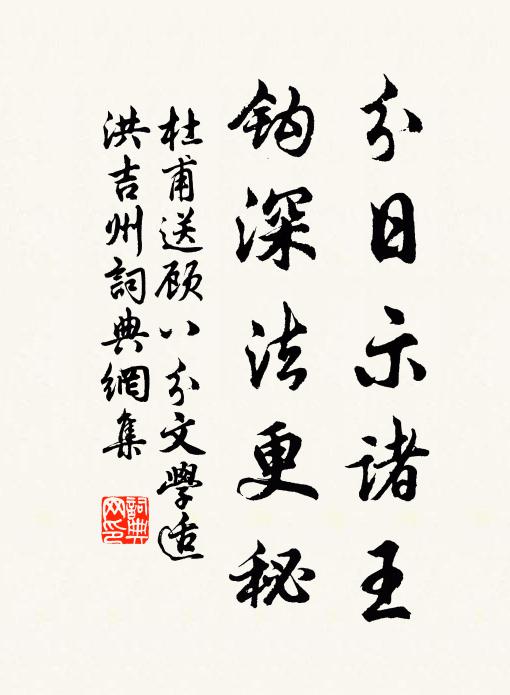 分日示诸王
钩深法更秘
杜甫送顾八分文學适
洪吉州詞典網集
詞典網印